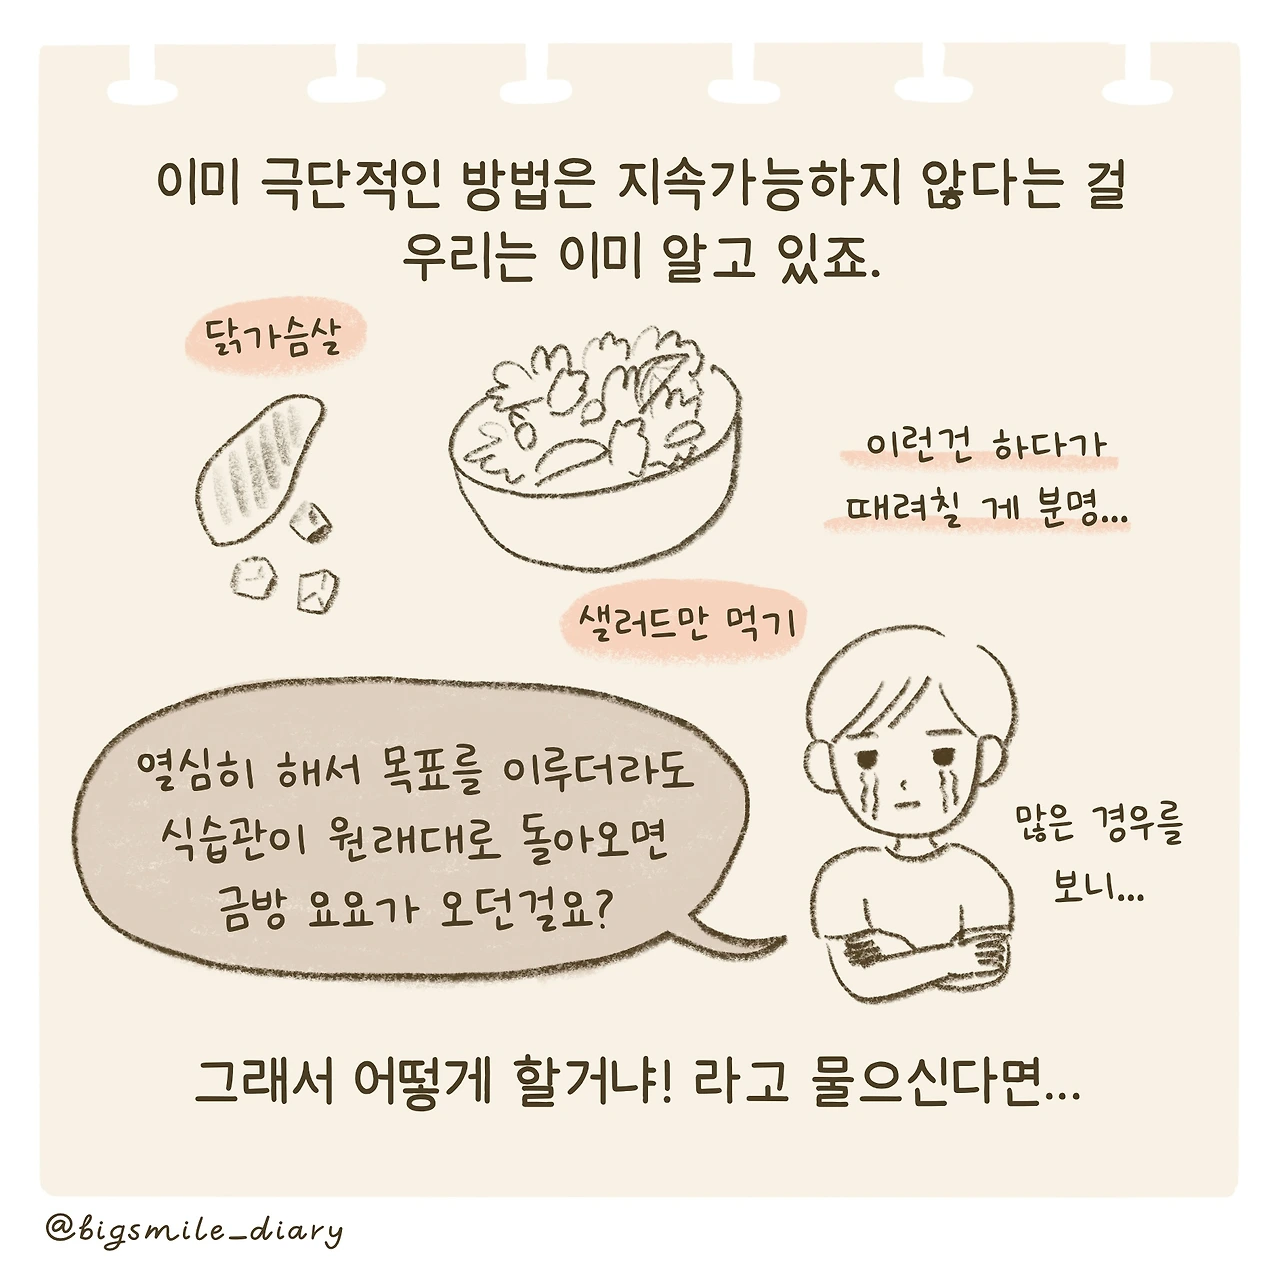 이미 극단적인 방법은 지속가능하지 않다는 걸
우리는 이미 알고 있죠.
닭가슴살
이런건 하다가
때려칠 게 분명...
샐러드만 먹기
열심히 해서 목표를 이루더라도
식습관이 원래대로 돌아오면
금방 요요가 오던걸요?
많은 경우를
보니...
그래서 어떻게 할거냐! 라고 물으신다면...
@bigsmile_diary